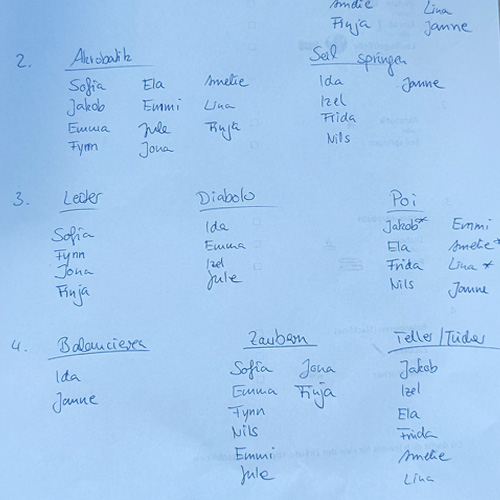 Amelie Lina
Finja Janne
2. Akrobatik Seil springen
Sofia Ela Amelie Ida Janne
Jakob Emmi Lina Izel
Emma Jule Finja Frida
Fynn Jona Nils
3. Leiter Diabolo Poi
Sofia Ida Jakob* Emmi
Fynn Emma Ela Amelie*
Jona Izel Frida Lina *
Finja Jule Nils Janne
4. Balancieren Zaubern Teller/Tücher
Ida Sofia Jona Jakob
Janne Emma Finja Izel
Fynn Ela
Nils Frida
Emmi Amelie
Jule Lina